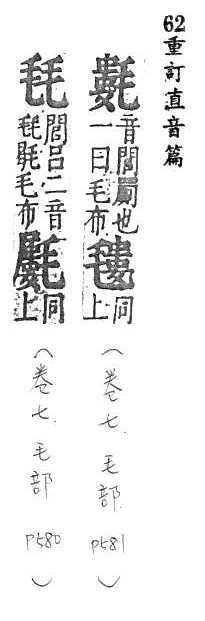 62重訂直音篇
音閭罽也
一曰毛布
氀
同
上
（卷七．毛部．P581）
閭呂二音
毛布
同
上
（卷七．毛部 P580）